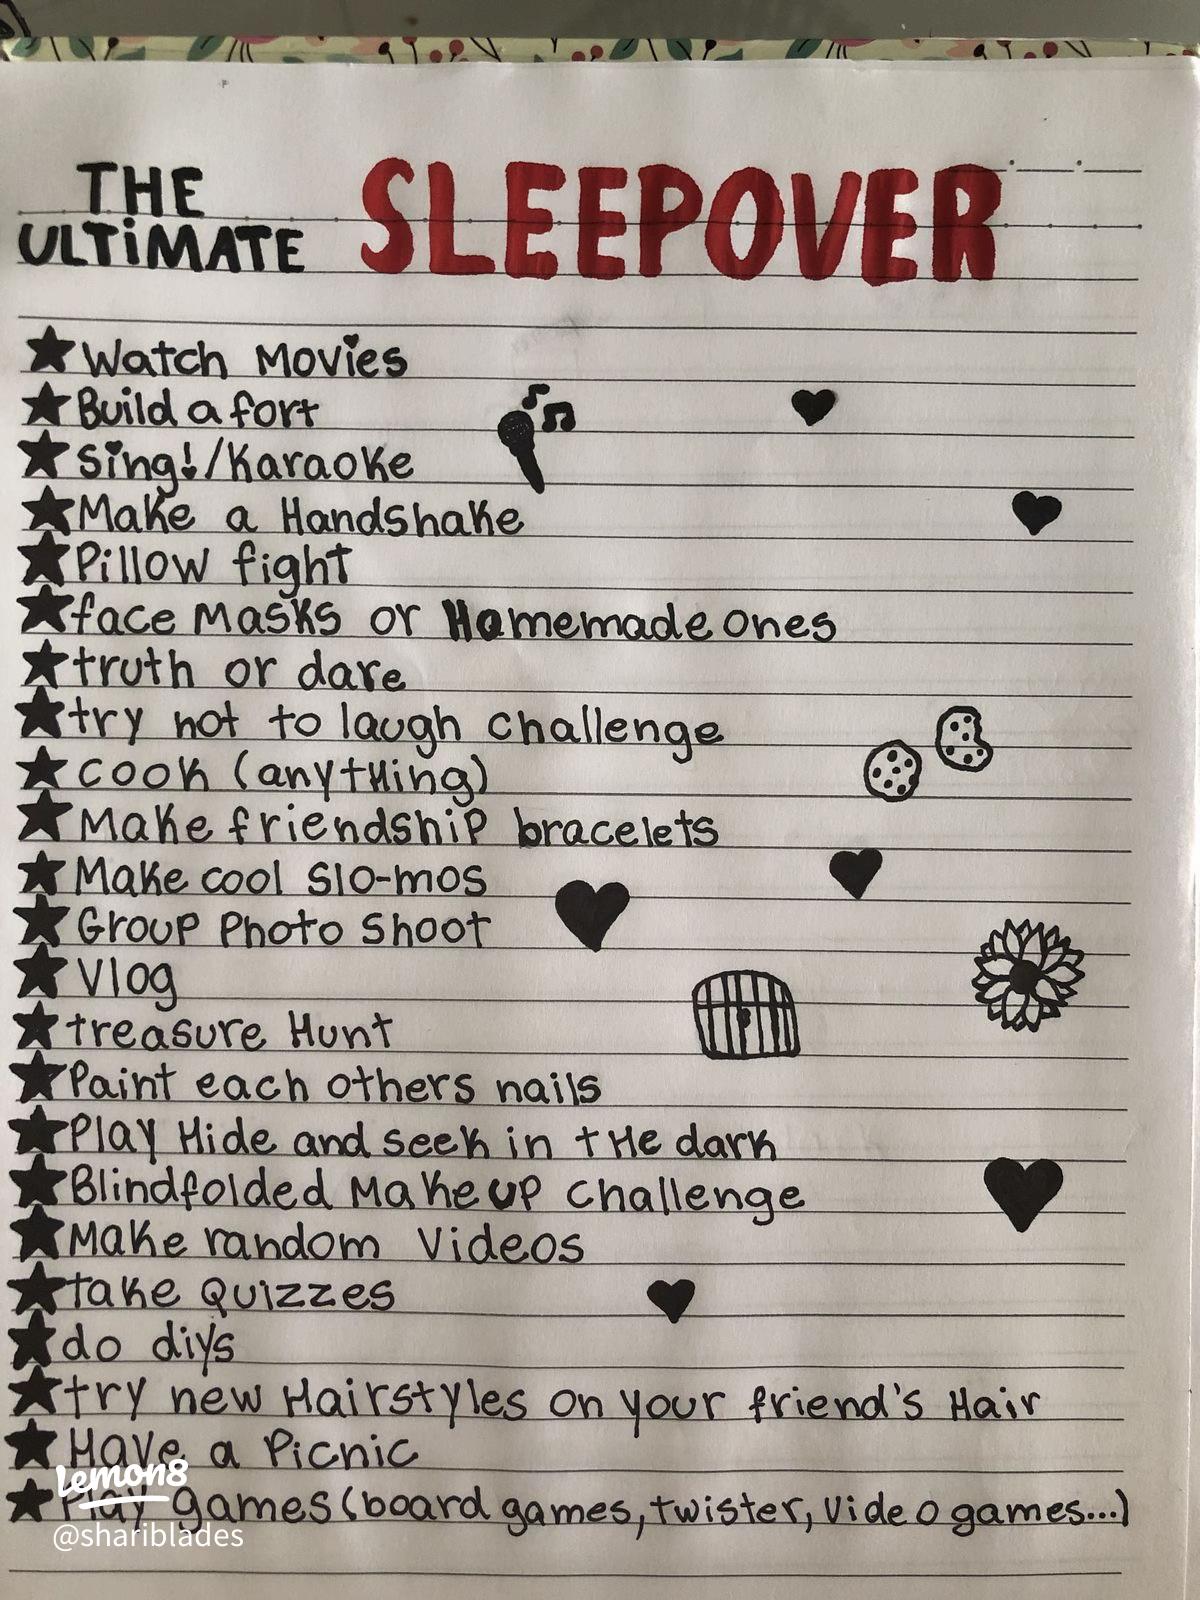 THE
ULTiMATE SLEEPOVER
Watch Movies
Build a fort
Sing!/Karaoke
Make a Handshake
Pillow fight
face Masks or Homemade ones
truth or dare
try not to laugh challenge
cook (anytHing)
Make friendship bracelets
Make cool Slo-mos
Group Photo Shoot
Vlog
treasure Hunt
Paint each others nails
Play Hide and seek in tHe dark
Blindfolded Makeup challenge
Make random Videos
take Quizzes
do diys
try new Hairstyles on your friend's Hair
Have a Picnic
Play games (board games, twister, Video games...)
Lemon8
@shariblades